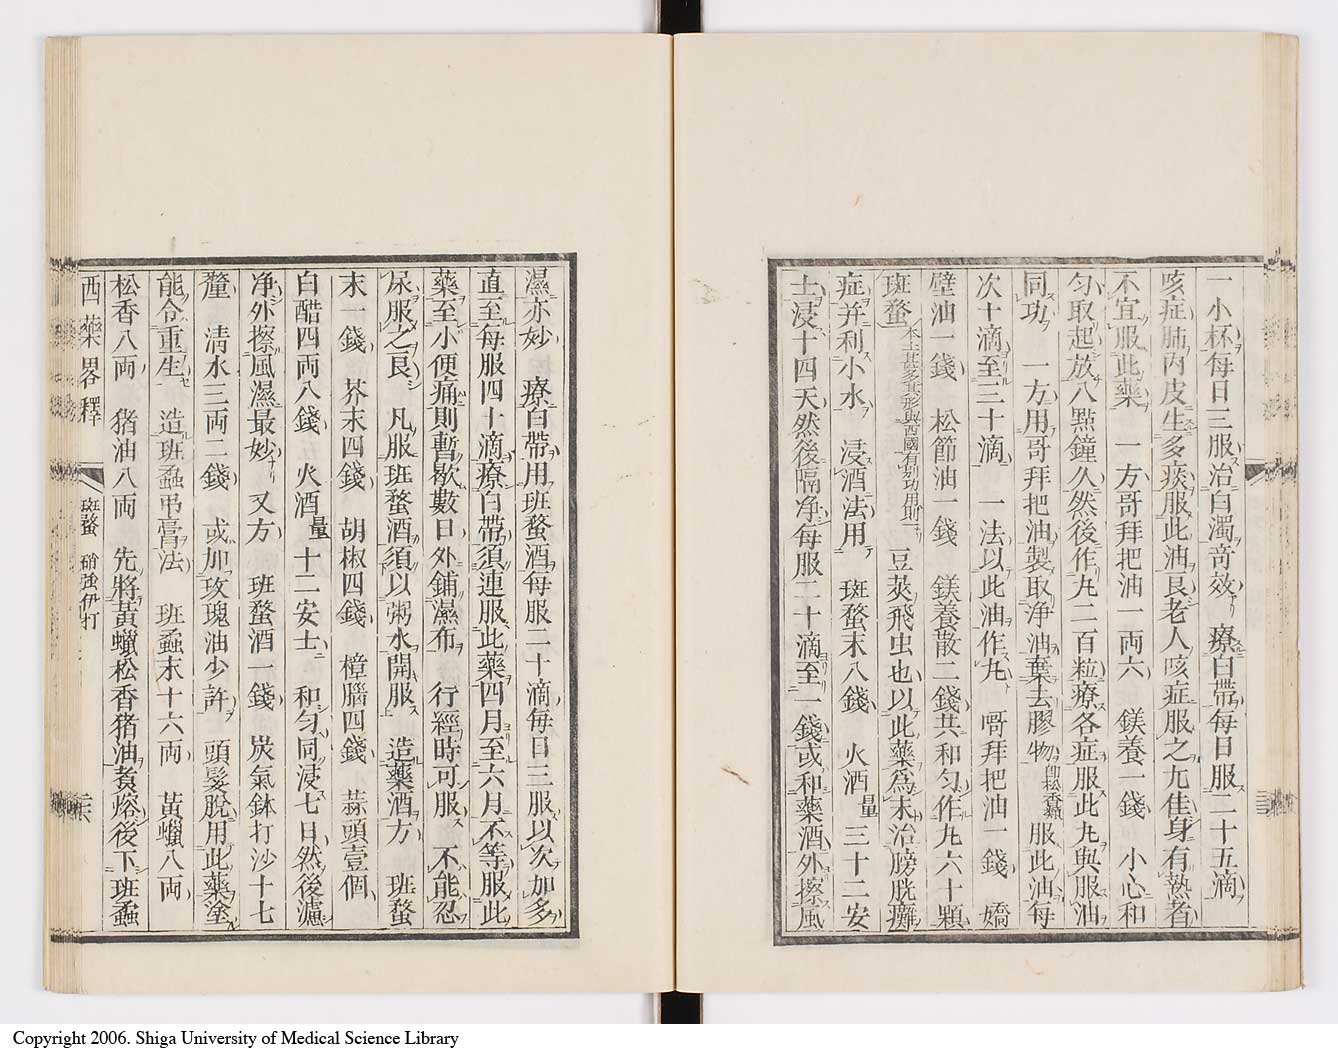 一小杯每日三服治白濁奇效　療白帶每日服二十五滴
咳症肺内皮生多痰服此油良老人咳症服之尤佳身有熱者
不宜服此藥　一方哥拜把油一両六　鎂養一錢　小心和
匀取起放八點鐘久然後作丸二百粒療各症服此丸與服油
同功　一方用哥拜把油製取净油棄去膠物即松香類服此油每
次十滴至三十滴　一法以此油作丸　哥拜把油一錢　嬌
壁油一錢　松節油一錢　鎂養散二錢共和匀作丸六十顆
斑蝥本土甚多其形與西國有别功用則一　豆莢飛虫也以此藥爲末治膀胱癱
症并利小水　浸酒法用　斑蝥末八錢　火酒量三十二安
士浸十四天然後隔净每服二十滴至一錢或和藥酒外擦風
濕亦妙　療白帶用斑蝥酒每服二十滴每日三服以次加多
直至每服四十滴療白帶須連服此藥四月至六月不等服此
藥至小便痛則暫歇數日外鋪濕布　行經時可服　不能忍
尿服之良　凡服斑蝥酒須以粥水開服　造藥酒方　斑蝥
末一錢　芥末四錢　胡椒四錢　樟腦四錢　蒜頭壹個
白醋四両八錢　火酒量十二安士　和匀同浸七日然後濾
净外擦風濕最妙　又方　斑蝥酒一錢　炭氣鉢打沙十七
釐　清水三両二錢　或加玫瑰油少許　頭髪脱用此藥塗
能令重生　造斑蟊弔膏法　斑蟊末十六両　黄蠟八両
松香八両　猪油八両　先將黄蠟松香猪油煑熔後下斑蟊
西藥畧釋　斑蝥　硝強伊打　二六